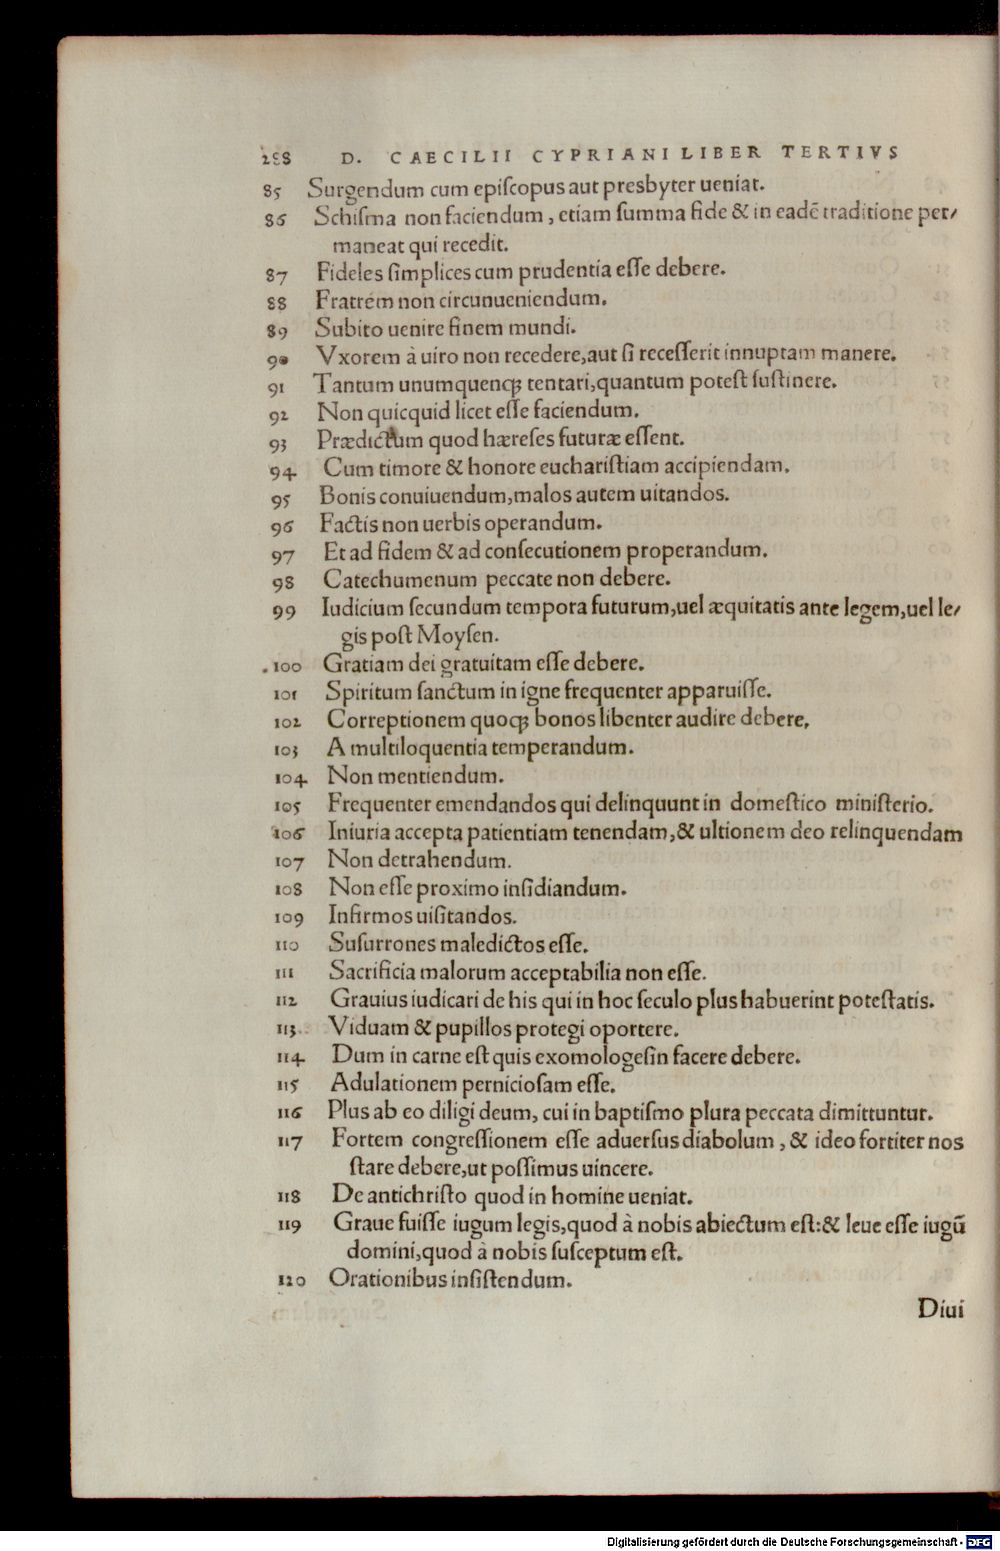 288 D. CAECILII CYPRIANI LIBER TERTIVS
85 Surgendum cum epiſcopus aut presbyter ueniat.
86 Schiſma non faciendum, etiam ſumma fide & in eadē traditione per/
maneat qui recedit.
87 Fideles ſimplices cum prudentia eſſe debere.
88 Fratrem non circunueniendum.
89 Subito uenire finem mundi.
90 Vxorem à uiro non recedere, aut ſi receſſerit innuptam manere.
91 Tantum unumquenqꝫ tentari, quantum poteſt ſuſtinere.
92 Non quicquid licet eſſe faciendum.
93 Prædictum quod hæreſes futuræ eſſent.
94 Cum timore & honore euchariſtiam accipiendam.
95 Bonis conuiuendum, malos autem uitandos.
96 Factis non uerbis operandum.
97 Et ad fidem & ad conſecutionem properandum.
98 Catechumenum peccate non debere.
99 Iudicium ſecundum tempora futurum, uel æquitatis ante legem, uel le/
gis poſt Moyſen.
100 Gratiam dei gratuitam eſſe debere.
101 Spiritum ſanctum in igne frequenter apparuiſſe.
102 Correptionem quoqꝫ bonos libenter audire debere,
103 A multiloquentia temperandum.
104 Non mentiendum.
105 Frequenter emendandos qui delinquunt in domeſtico miniſterio.
106 Iniuria accepta patientiam tenendam, & ultionem deo relinquendam
107 Non detrahendum.
108 Non eſſe proximo inſidiandum.
109 Infirmos uiſitandos.
110 Suſurrones maledictos eſſe.
111 Sacrificia malorum acceptabilia non eſſe.
112 Grauius iudicari de his qui in hoc ſeculo plus habuerint poteſtatis.
113 Viduam & pupillos protegi oportere.
114 Dum in carne eſt quis exomologeſin facere debere.
115 Adulationem pernicioſam eſſe.
116 Plus ab eo diligi deum, cui in baptiſmo plura peccata dimittuntur.
117 Fortem congreſſionem eſſe aduerſus diabolum, & ideo fortiter nos
ſtare debere, ut poſſimus uincere.
118 De antichriſto quod in homine ueniat.
119 Graue fuiſſe iugum legis, quod à nobis abiectum eſt: & leue eſſe iugū
domini, quod à nobis ſuſceptum eſt.
120 Orationibus inſiſtendum.
Diui
Digitalisierung gefördert durch die Deutsche Forschungsgemeinschaft - DFG